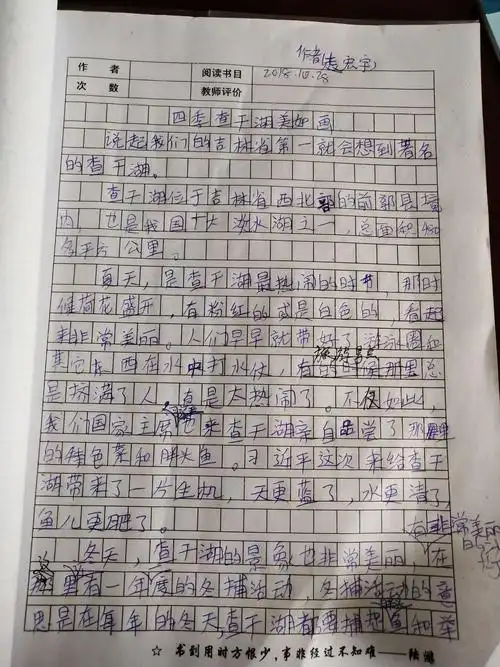 作者赵宏宇
作者 阅读书目 2018.10.28
次数 教师评价
四季查干湖美如画
说起我们的吉林省第一就会想到著名
的查干湖。
查干湖位于吉林省西北部的前郭县境
内，也是我国十大淡水湖之一，总面积480
多平方公里。
夏天，是查干湖最热闹的时节，那时
候荷花盛开，有粉红的或是白色的，看起
来非常美丽。人们早早就带好了游泳圈和
其它东西在水中打水仗，有的时候那里总
是挤满了人，真是太热闹了。不仅如此，
我们国家主席也来查干湖亲自品尝了那里
的特色菜和胖头鱼。习近平这次来给查干
湖带来了一片生机，天更蓝了，水更清了，
鱼儿更肥了。
有非常美丽的
冬天，查干湖的景象也非常美丽，在
这里有一年一度的冬捕活动，冬捕活动的意
思是在每年的冬天，查干湖都要捕捉鱼和举
☆ 书到用时方恨少，事非经过不知难——陆游